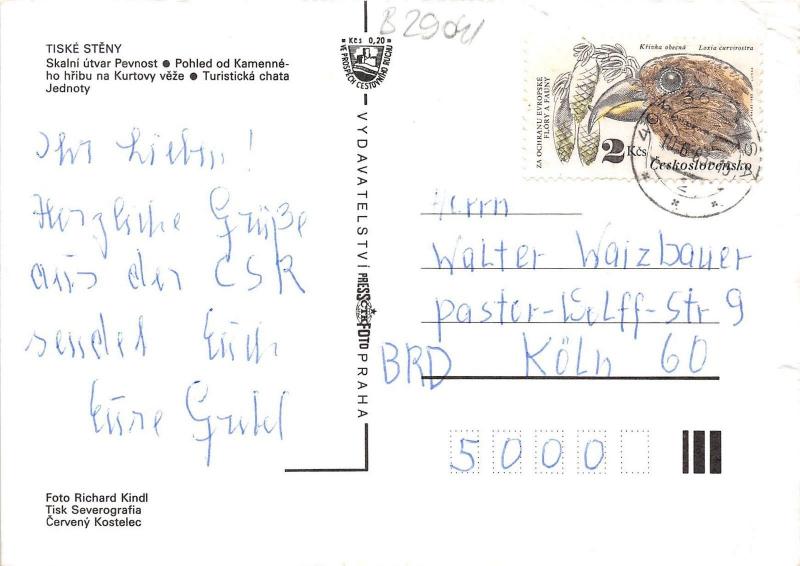 B2904
TISKÉ STĚNY
Skalní útvar Pevnost ● Pohled od Kamenné-
ho hřibu na Kurtovy věže ● Turistická chata
Jednoty
Ihr Lieben!
Herzliche Grüße
aus der CSR
sendet Euch
Eure Gretel
Foto Richard Kindl
Tisk Severografia
Červený Kostelec
Kčs 0,20
VE PROSPĚCH CESTOVNÍHO RUCHU
VYDAVATELSTVÍ PRESSFOTO PRAHA
ČTK
ZA OCHRANU EVROPSKÉ
FLÓRY A FAUNY
Křivka obecná Loxia curvirostra
2 Kčs
Československo
Herrn
Walter Waizbauer
Pastor-Wolff-Str 9
BRD Köln 60
5000